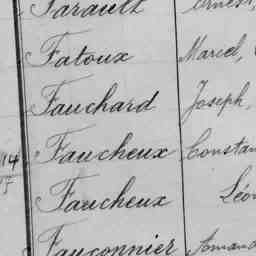 Farault Ernest,
Fatoux Marcel,
Fauchard Joseph,
14 Faucheux Constan
Faucheux Léon
Fauconnier Armand